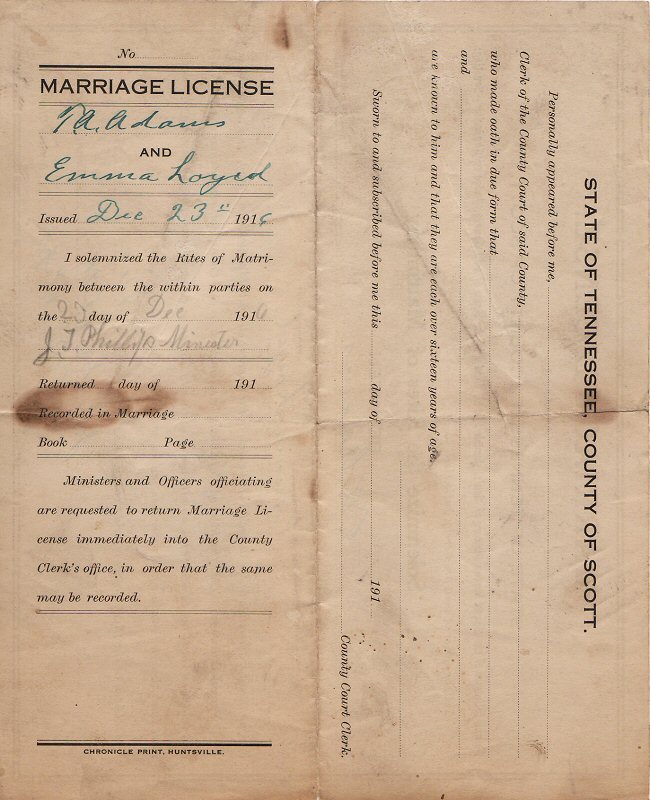 No
MARRIAGE LICENSE
A. Adams
AND
Emma Loyed
Issued Dec 23 191
I solemnized the Rites of Matri-
mony between the within parties on
the 23 day of Dec 191
J. T. Phillips Minister
Returned day of 191
Recorded in Marriage
Book Page
Ministers and Officers officiating
are requested to return Marriage Li-
cense immediately into the County
Clerk's office, in order that the same
may be recorded.
CHRONICLE PRINT, HUNTSVILLE.
STATE OF TENNESSEE, COUNTY OF SCOTT.
Personally appeared before me,
Clerk of the County Court of said County,
who made oath in due form that
and
are known to him and that they are each over sixteen years of age.
Sworn to and subscribed before me this day of 191
County Court Clerk.